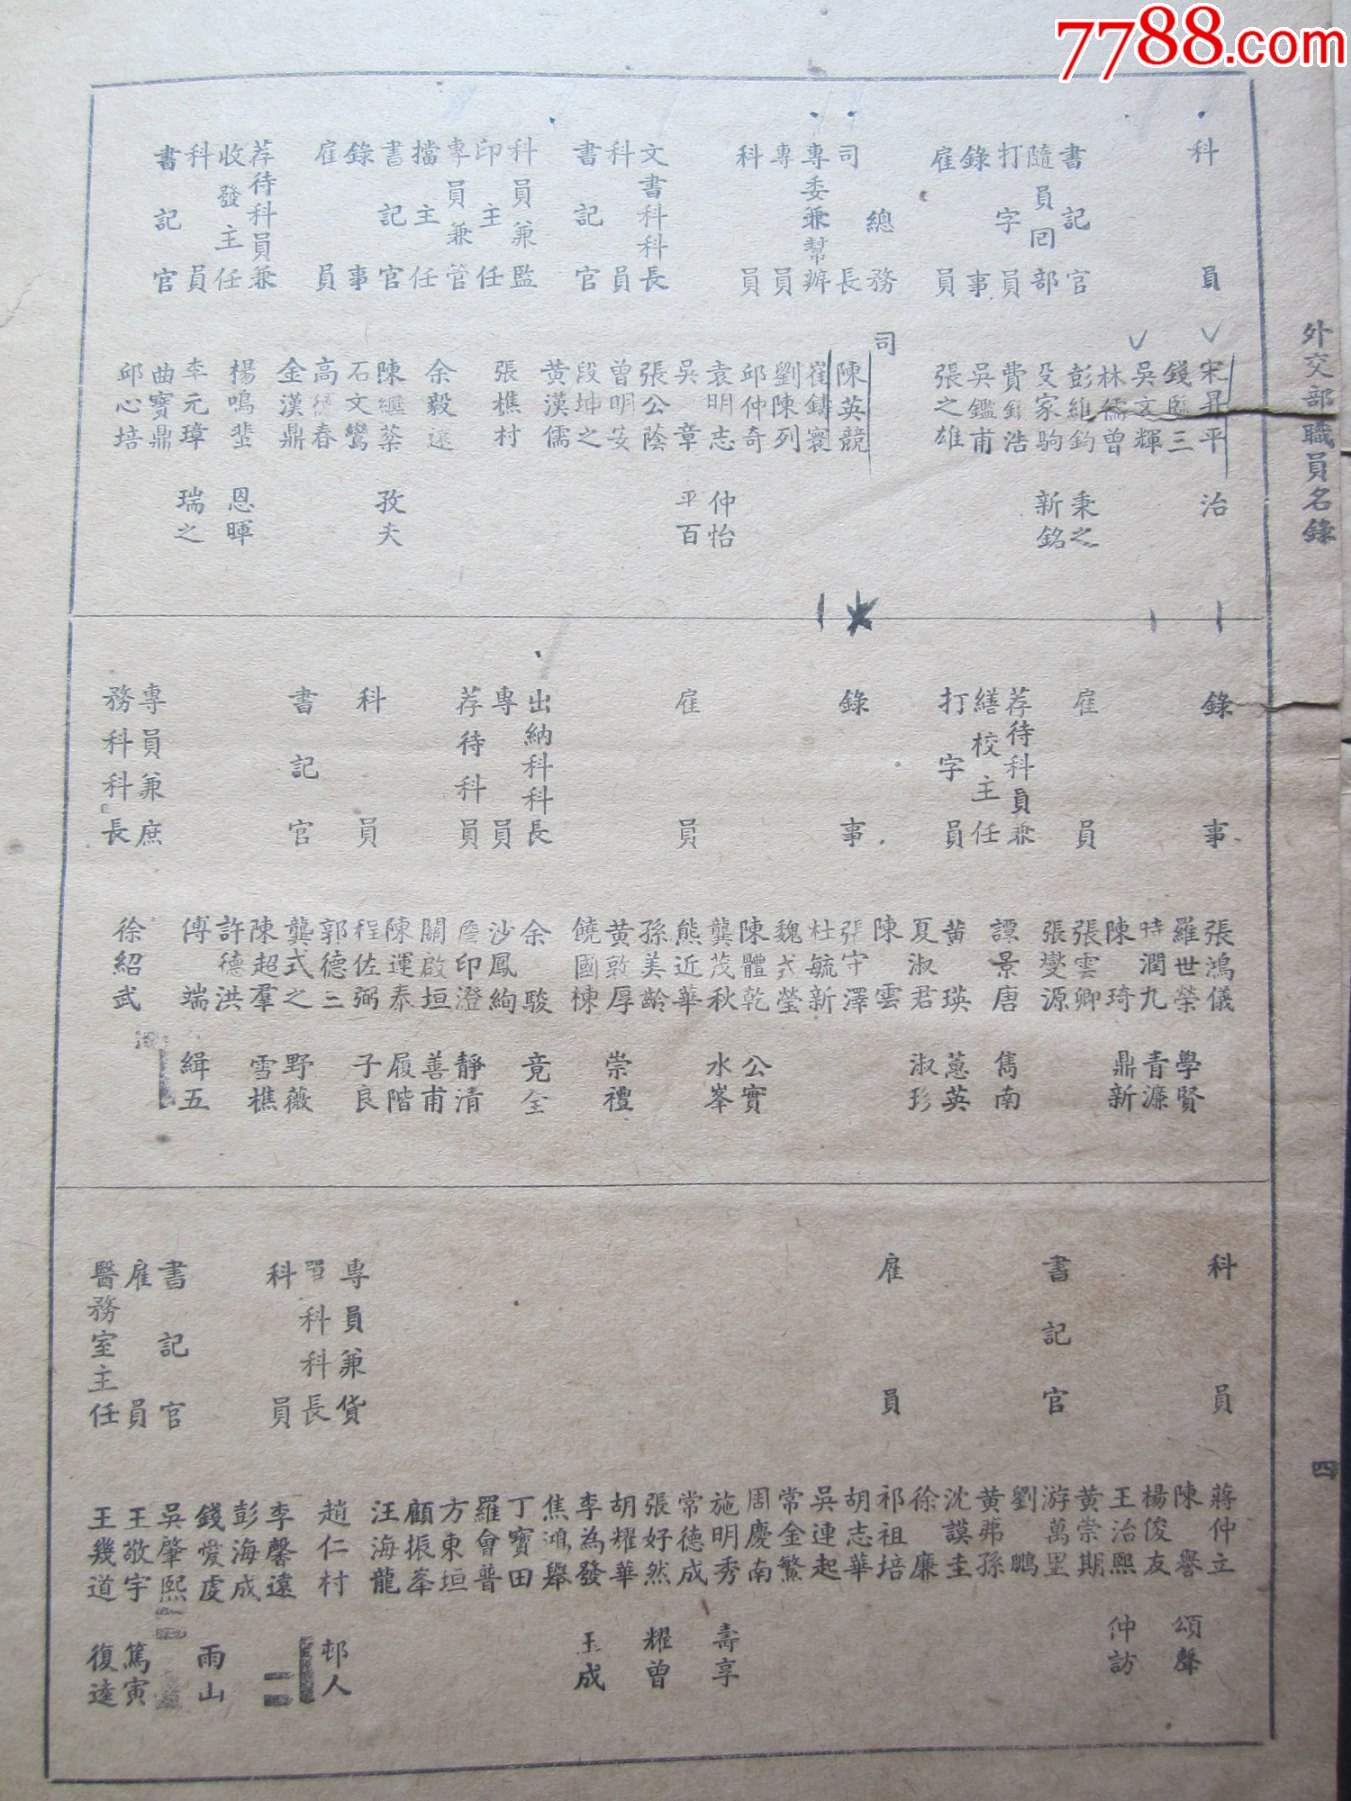 7788.com
外交部職員名錄
四
科員 宋昇平 治
錢三
吳文輝
林儒曾
書記官 彭維鈞 秉之
隨員回部 家駒 新銘
打字員 費浩
錄事 吳鑑甫
雇員 張之雄
總務司
司長 陳英競
專委兼幫辦 崔鑄寰
專員 劉陳列
科員 邱仲奇
袁明志 仲怡
吳章 平百
文書科科長 張公蔭
科員 曾明安
書記官 段坤之
黃漢儒
科員兼監印主任 張樵村
專員兼管檔主任 余毅遠
書記官 陳繼葉 孜夫
錄事 石文鸞
雇員 高德春
金漢鼎
荐待科員兼收發主任 楊鳴 恩暉
科員 李元璋 瑞之
書記官 曲寶鼎
邱心培
錄事 張鴻儀
羅世榮 學賢
時潤九 青濂
陳琦 鼎新
雇員 張雲卿
張燮源
荐待科員兼繕校主任 譚景唐 雋南
打字員 黃瑛 蕙英
夏淑君 淑珍
陳雲
錄事 張守澤
杜毓新
魏式瑩
陳體乾 公實
龔茂秋 水峯
雇員 熊近華
孫美齡
黃敦厚 崇禮
饒國棟
出納科科長 余駿 竟全
專員 沙鳳絢
荐待科員 詹印澄 靜清
關啟垣 善甫
陳運泰 履階
科員 程佐弼 子良
郭德三
書記官 龔式之 野薇
陳超羣 雪樵
許德洪
傅端 緝五
專員兼庶務科科長 徐紹武
科員 蔣仲立
陳譽 頌聲
楊俊友
王治熙 仲訪
黃崇期
書記官 游萬里
劉鵬
黃弗孫
沈謨圭
徐廉
雇員 祁祖培
胡志華
吳連起
常金繁
周慶南
施明秀 壽享
常德成
張好然 耀曾
胡耀華
李為發 玉成
焦鴻舉
丁寶田
羅會普
方東垣
顧振峯
汪海龍
專員兼貨科科長 趙仁村 邨人
科員 李馨遠
彭海成
錢愛虔 雨山
書記官 吳肇熙
雇員 王敬宇 篤寅
醫務室主任 王幾道 復達